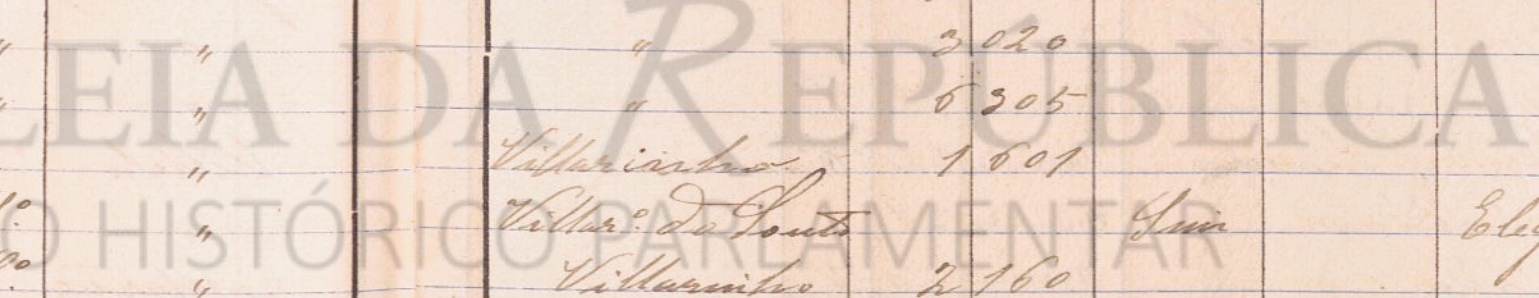 " " " 3 020
" " " 6 305
" Villarinho 1 601
" Villar.º do Souto Sim
" Villarinho 2 160
LEIA DA REPÚBLICA
O HISTÓRICO PARLAMENTAR